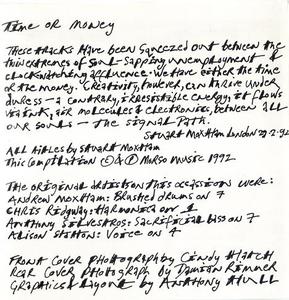 Time or Money
These tracks have been squeezed out between the
twin extremes of soul-sapping unemployment &
clockwatching affluence. We have either the time
or the money. Creativity, however, can thrive under
duress – a contrary, irresistible energy, it flows
via ink, air molecules & electronics, between all
our souls – the signal path.
Stuart Moxham London 29.2.92
All titles by Stuart Moxham
This compilation © & ℗ Marso Music 1992
The original artists on this occasion were:
Andrew Moxham: Brushed drums on 7
Chris Ridgway: Harmonica on 2
Anthony Silvestros: Sacrificial bass on 7
Alison Statton: Voice on 4
Front cover photograph by Cindy Hatch
Rear cover photograph by Damian Rimmer
Graphics & layout by Anthony Hull